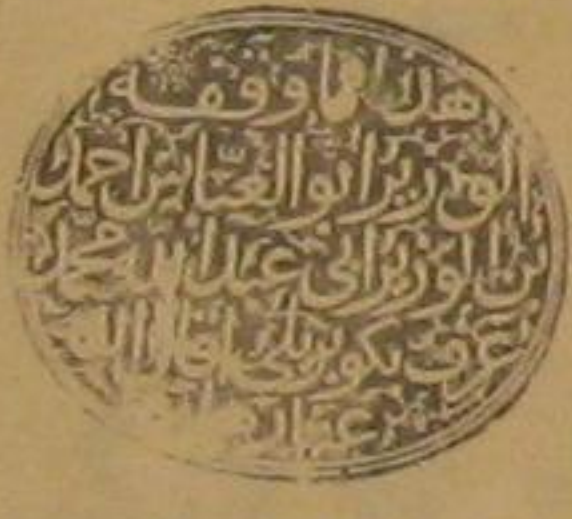 هذا ما وقفه
الوزير ابو العباس احمد
بن الوزير ابي عبد الله محمد
عرف بكوبريلي اقال الله
عثار